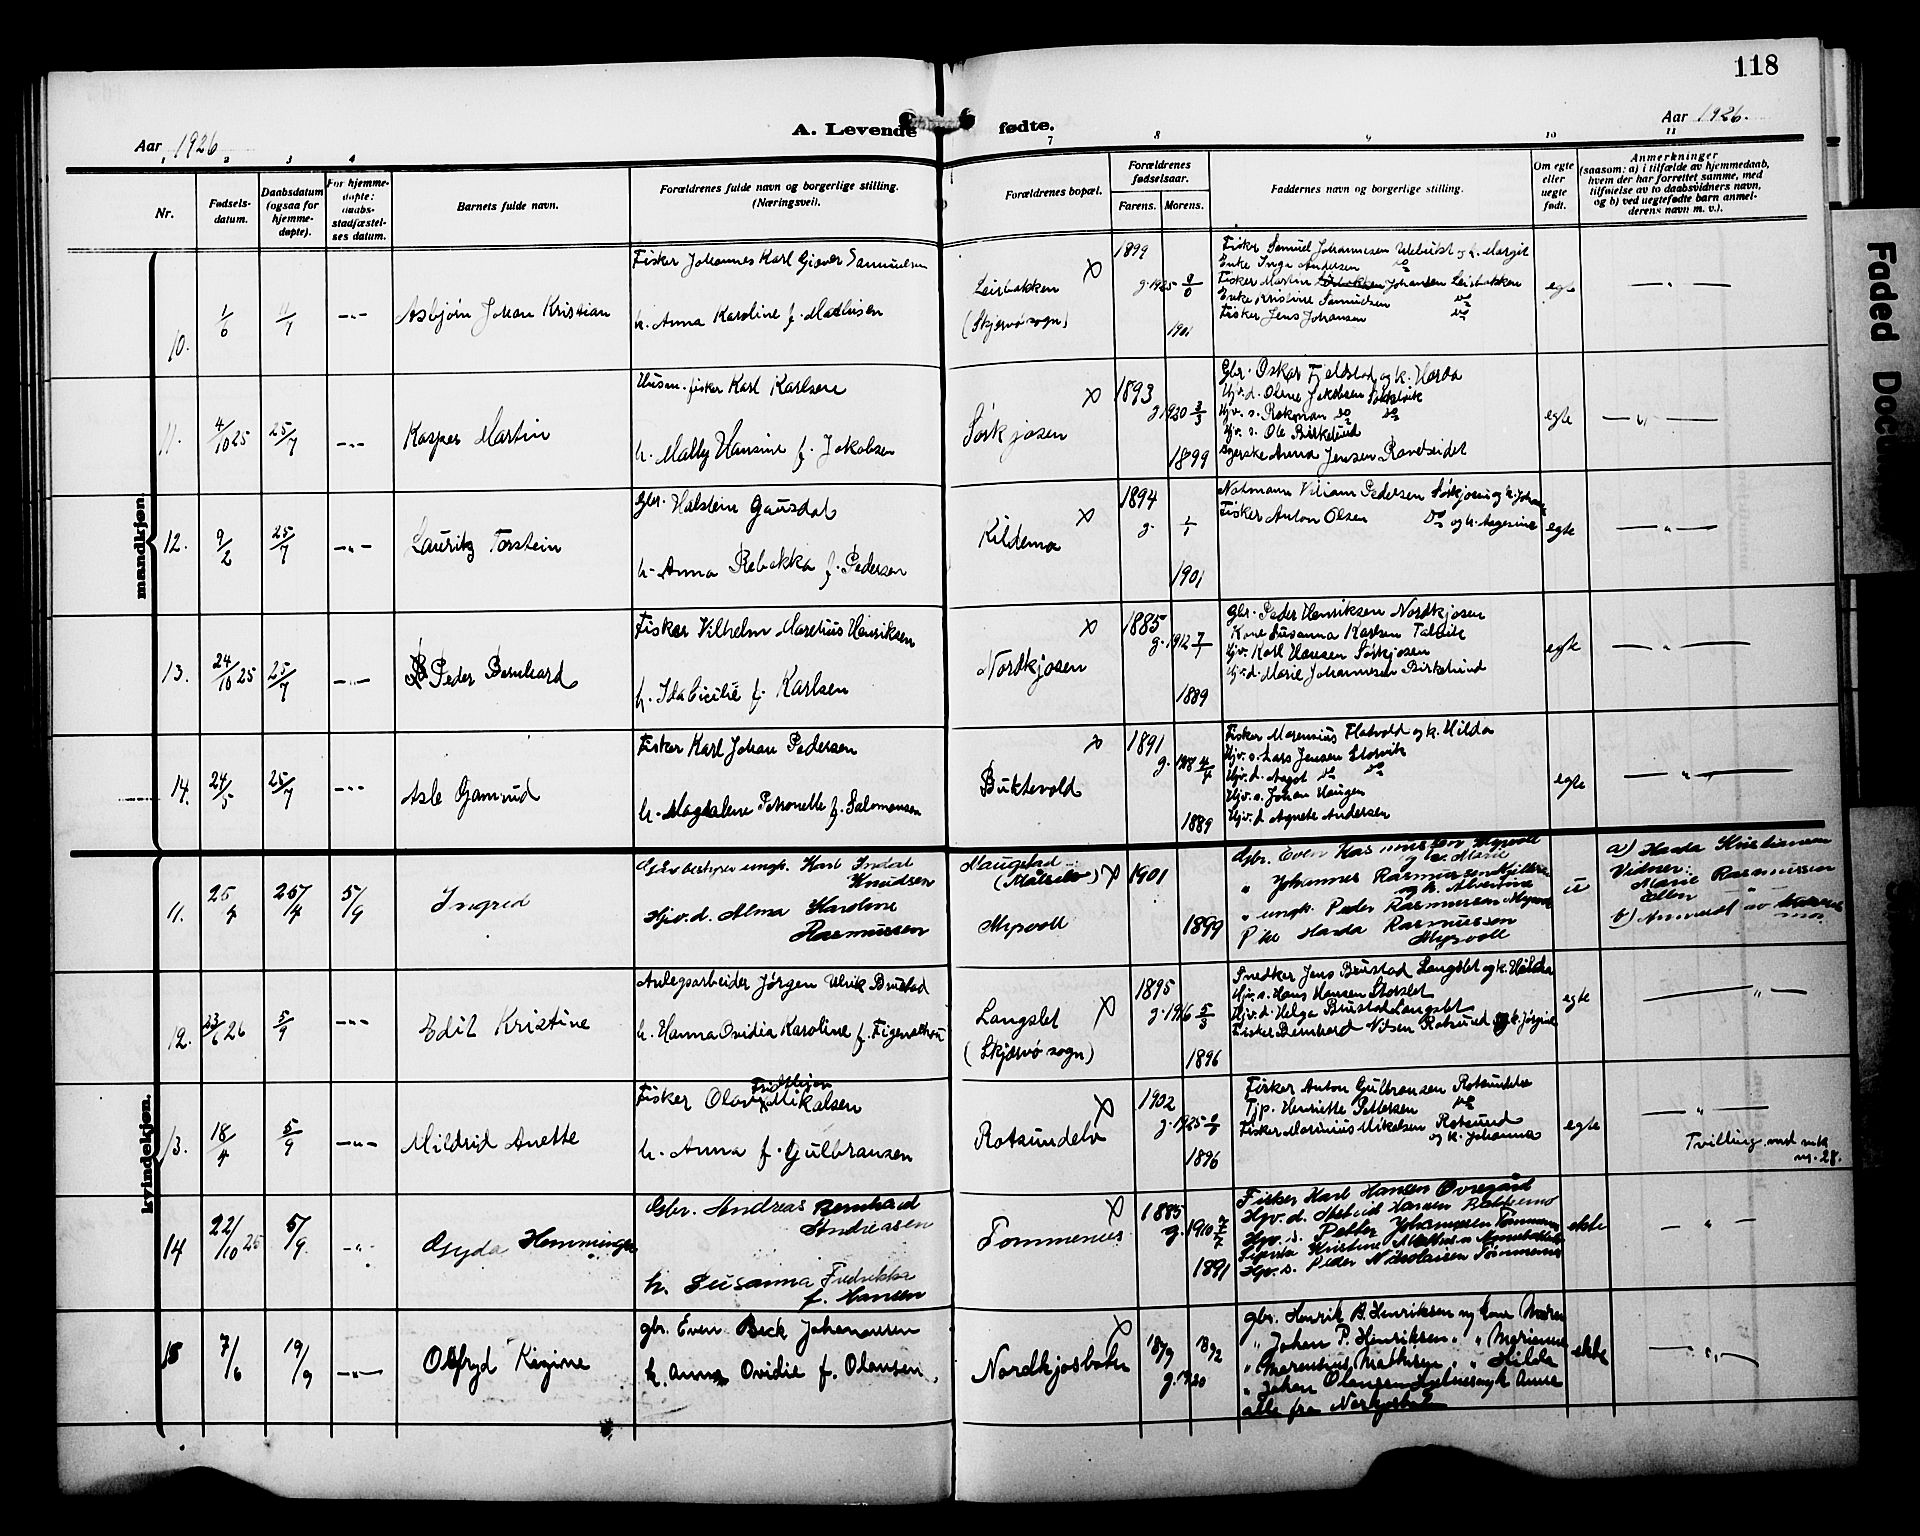 118
Aar 1926
A. Levende fødte.
Aar 1926.
1 2 3 4 7 8 9 10 11
Nr.
Fødsels-
datum.
Daabsdatum
(ogsaa for
hjemme-
døpte).
For hjemme-
døpte:
daabs-
stadfæstel-
ses datum.
Barnets fulde navn.
Forældrenes fulde navn og borgerlige stilling.
(Næringsvei).
Forældrenes bopæl.
Forældrenes
fødselsaar.
Farens. Morens.
Faddernes navn og borgerlige stilling.
Om egte
eller
uegte
født.
Anmerkninger
(saasom: a) i tilfælde av hjemmedaab,
hvem der har forrettet samme, med
tilføielse av to daabsvidners navn,
og b) ved uegtefødte barn anmel-
derens navn m. v.).
mandkjøn.
10.
1/6
4/7
-"-
Asbjørn Johan Kristian
Fisker Johannes Karl Giæver Samuelsen
h. Anna Karoline f. Mathisen
Leirbakken
(Skjervø sogn)
1899
g. 1925
1901
Fisker Samuel Johannesen og h. Margit
Enke Inga Andersen do
Fisker Martin Johansen Leirbakken
Enke Kristine Samuelsen do
Fisker Jens Johansen do
egte
— " —
11.
4/10 25
25/7
-"-
Kasper Martin
Husm. fisker Karl Karlsen
h. Mally Hansine f. Jakobsen
Sørkjosen
1893
g. 1920 3/3
1899
Gbr. Oskar Fjeldstad og k. Harda
Hjv. d. Oline Jakobsen
Hjv. s. do do
Hjv. s. Ole Birkelund
Anna Jensen Ravelseidet
egte
— " —
12.
9/2
25/7
-"-
Lauritz Torstein
Gbr. Halstein Gausdal
h. Anna Rebekka f. Pedersen
Kildemo
1894
g. 1/1
1901
Notmann Viliam Pedersen Sørkjosen og k. Johanna
Fisker Anton Olsen do og h. Aagerine
egte
— " —
13.
24/10 25
25/7
-"-
Peder Bernhard
Fisker Vilhelm Maretius Henriksen
h. Ida Cicilie f. Karlsen
Nordkjosen
1885
g. 1912 7/7
1889
Gbr. Peder Henriksen Nordkjosen
Kone Susanna Karlsen Talvik
Hjv. Karl Hansen Sørkjosen
Hjv. d. Marie Johannesen Birkelund
egte
— " —
14.
24/5
25/7
-"-
Asle Gamrud
Fisker Karl Johan Pedersen
h. Magdalene Petronelle f. Salomonsen
Buktevold
1891
g. 1918 4/4
1889
Fisker Marensius Flatvold og k. Hilda
Hjv. s. Lars Jensen Storvik
Hjv. d. Aagot do do
Hjv. s. Johan Haugen
Hjv. d. Agnete Andersen
egte
— " —
kvindekjøn.
11.
25/4
25/4
5/9
Ingrid
ungk. Karl Indal
Knudsen
Hjv. d. Alma Karoline
Rasmussen
Maugstad
(Målselv)
Myrvoll
1901
1899
Gbr. Even Rasmussen Myrvoll
og h. Marie
" Johannes Rasmussen
og h. Albertine
" ungk. Peder Rasmussen Myrvoll
Pike Harda Rasmussen
Myrvoll
u
a) Harda Kristiansen
Vidner:
Marie Rasmussen
Ellen "
b) Anmeldt av
mor.
12.
23/6 26
5/9
-"-
Edit Kristine
Anlegsarbeider Jørgen Ulrik Brustad
h. Hanna Ovidia Karoline f. Figenschou
Langslet
(Skjervø sogn)
1895
g. 1916 5/3
1896
Snedker Jens Brustad Langslet og k. Hilda
Hjv. s. Hans Hansen Storslet
Hjv. d. Helga Brustad Langslet
Fisker Bernhard Nilsen Rotsund og k. Jørgine
egte
— " —
13.
18/4
5/9
-"-
Mildrid Anette
Fisker Olav Fridthjon Mikalsen
h. Anna f. Gulbransen
Rotsundelv
1902
g. 1925
1896
Fisker Anton Gulbransen Rotsundelv
Tjp. Henriette Pettersen do
Fisker Marinius Mikalsen Rotsund
og k. Johanna
egte
— " —
Tvilling med mk.
nr. 28.
14
22/10 25
5/9
-"-
Gyda Hemmingse
Gbr. Andreas Bernhard
Andreasen
h. Susanna Fredrikke
f. Hansen
Tømmernes
1885
g. 1910 7/7
1891
Fisker Karl Hansen Øvregård
Hjv. d. Astrid Hansen
Hjv. s. Petter Johannesen Tømmernes
Kristine Mathisen
Hjv. s. Peder Nikolaisen Tømmernes
ekte
— " —
15
7/6
19/9
-"-
Olfryd Kigine
gbr. Even Beck Johannesen
h. Anna Ovidie f. Olausen
Nordkjosboten
1879
1892
g. 1920
gbr. Henrik B. Henriksen og kone Maren
" Johan P. Henriksen " " Marianne
" Marensius Mathisen " " Hilda
" Johan Olausen og k Anna
alle fra Norkjosbot
ekte
— " —
Faded Docu